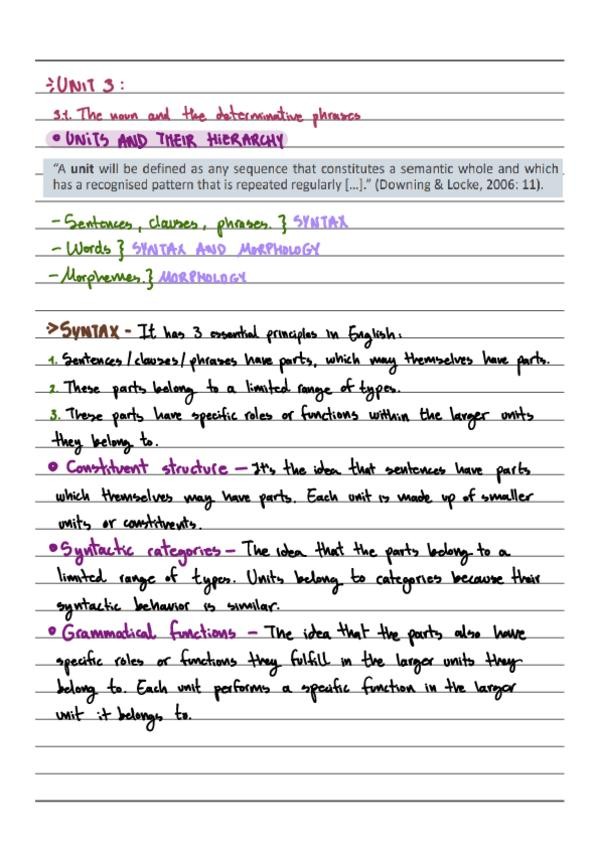 UNIT 3:
3.1. The noun and the determinative phrases
• UNITS AND THEIR HIERARCHY
"A unit will be defined as any sequence that constitutes a semantic whole and which
has a recognised pattern that is repeated regularly [...]." (Downing & Locke, 2006: 11).
- Sentences, clauses, phrases. } SYNTAX
- Words } SYNTAX AND MORPHOLOGY
- Morphemes. } MORPHOLOGY
> SYNTAX - It has 3 essential principles in English:
1. Sentences/clauses/phrases have parts, which may themselves have parts.
2. These parts belong to a limited range of types.
3. These parts have specific roles or functions within the larger units
they belong to.
• Constituent structure - It's the idea that sentences have parts
which themselves may have parts. Each unit is made up of smaller
units or constituents.
• Syntactic categories - The idea that the parts belong to a
limited range of types. Units belong to categories because their
syntactic behavior is similar.
• Grammatical functions - The idea that the parts also have
specific roles or functions they fulfill in the larger units they
belong to. Each unit performs a specific function in the larger
unit it belongs to.